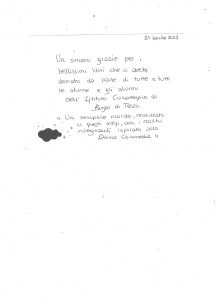 27 aprile 2023
Un sincero grazie per i
bellissimi libri che ci avete
donato da parte di tutte e tutti
le alunne e gli alunni
dell' Istituto Comprensivo di
Borgo di Terzo
" Un semplice ricordo, realizzato
in questi mesi, con i nostri
insegnanti ispirato alla
Divina Commedia "